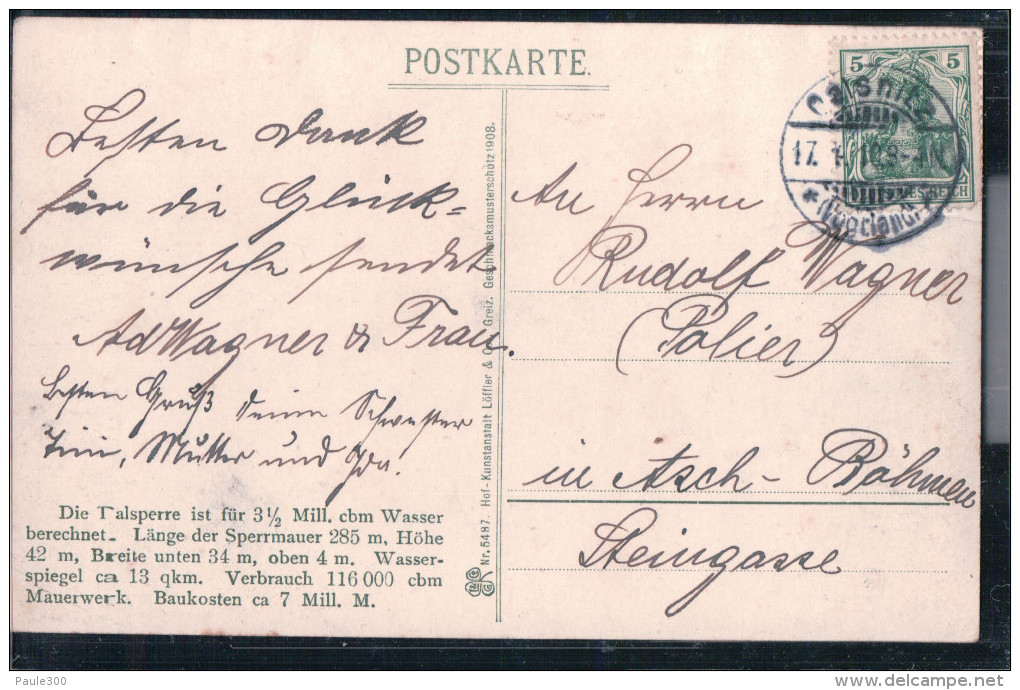 POSTKARTE.
Besten Dank
für die Glück-
wünsche sendet
AdWagner & Frau.
besten Gruß deine Schwester
Tini, Mutter und Ida.
Die Talsperre ist für 3½ Mill. cbm Wasser
berechnet. Länge der Sperrmauer 285 m, Höhe
42 m, Breite unten 34 m, oben 4 m. Wasser-
spiegel ca 13 qkm. Verbrauch 116 000 cbm
Mauerwerk. Baukosten ca 7 Mill. M.
Nr. 5487. Hof-Kunstanstalt Löffler & Co., Greiz. Geschmacksmusterschutz 1908.
5 5
Oelsnitz
17.
(Vogtland)
An Herrn
Rudolf Wagner
(Polier)
in Asch - Böhmen
Steingasse
Paule300
delcampe.net